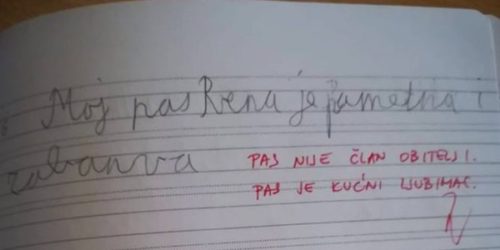 Moj pas Rena je pametna i
zabavna
PAS NIJE ČLAN OBITELJI.
PAS JE KUĆNI LJUBIMAC.